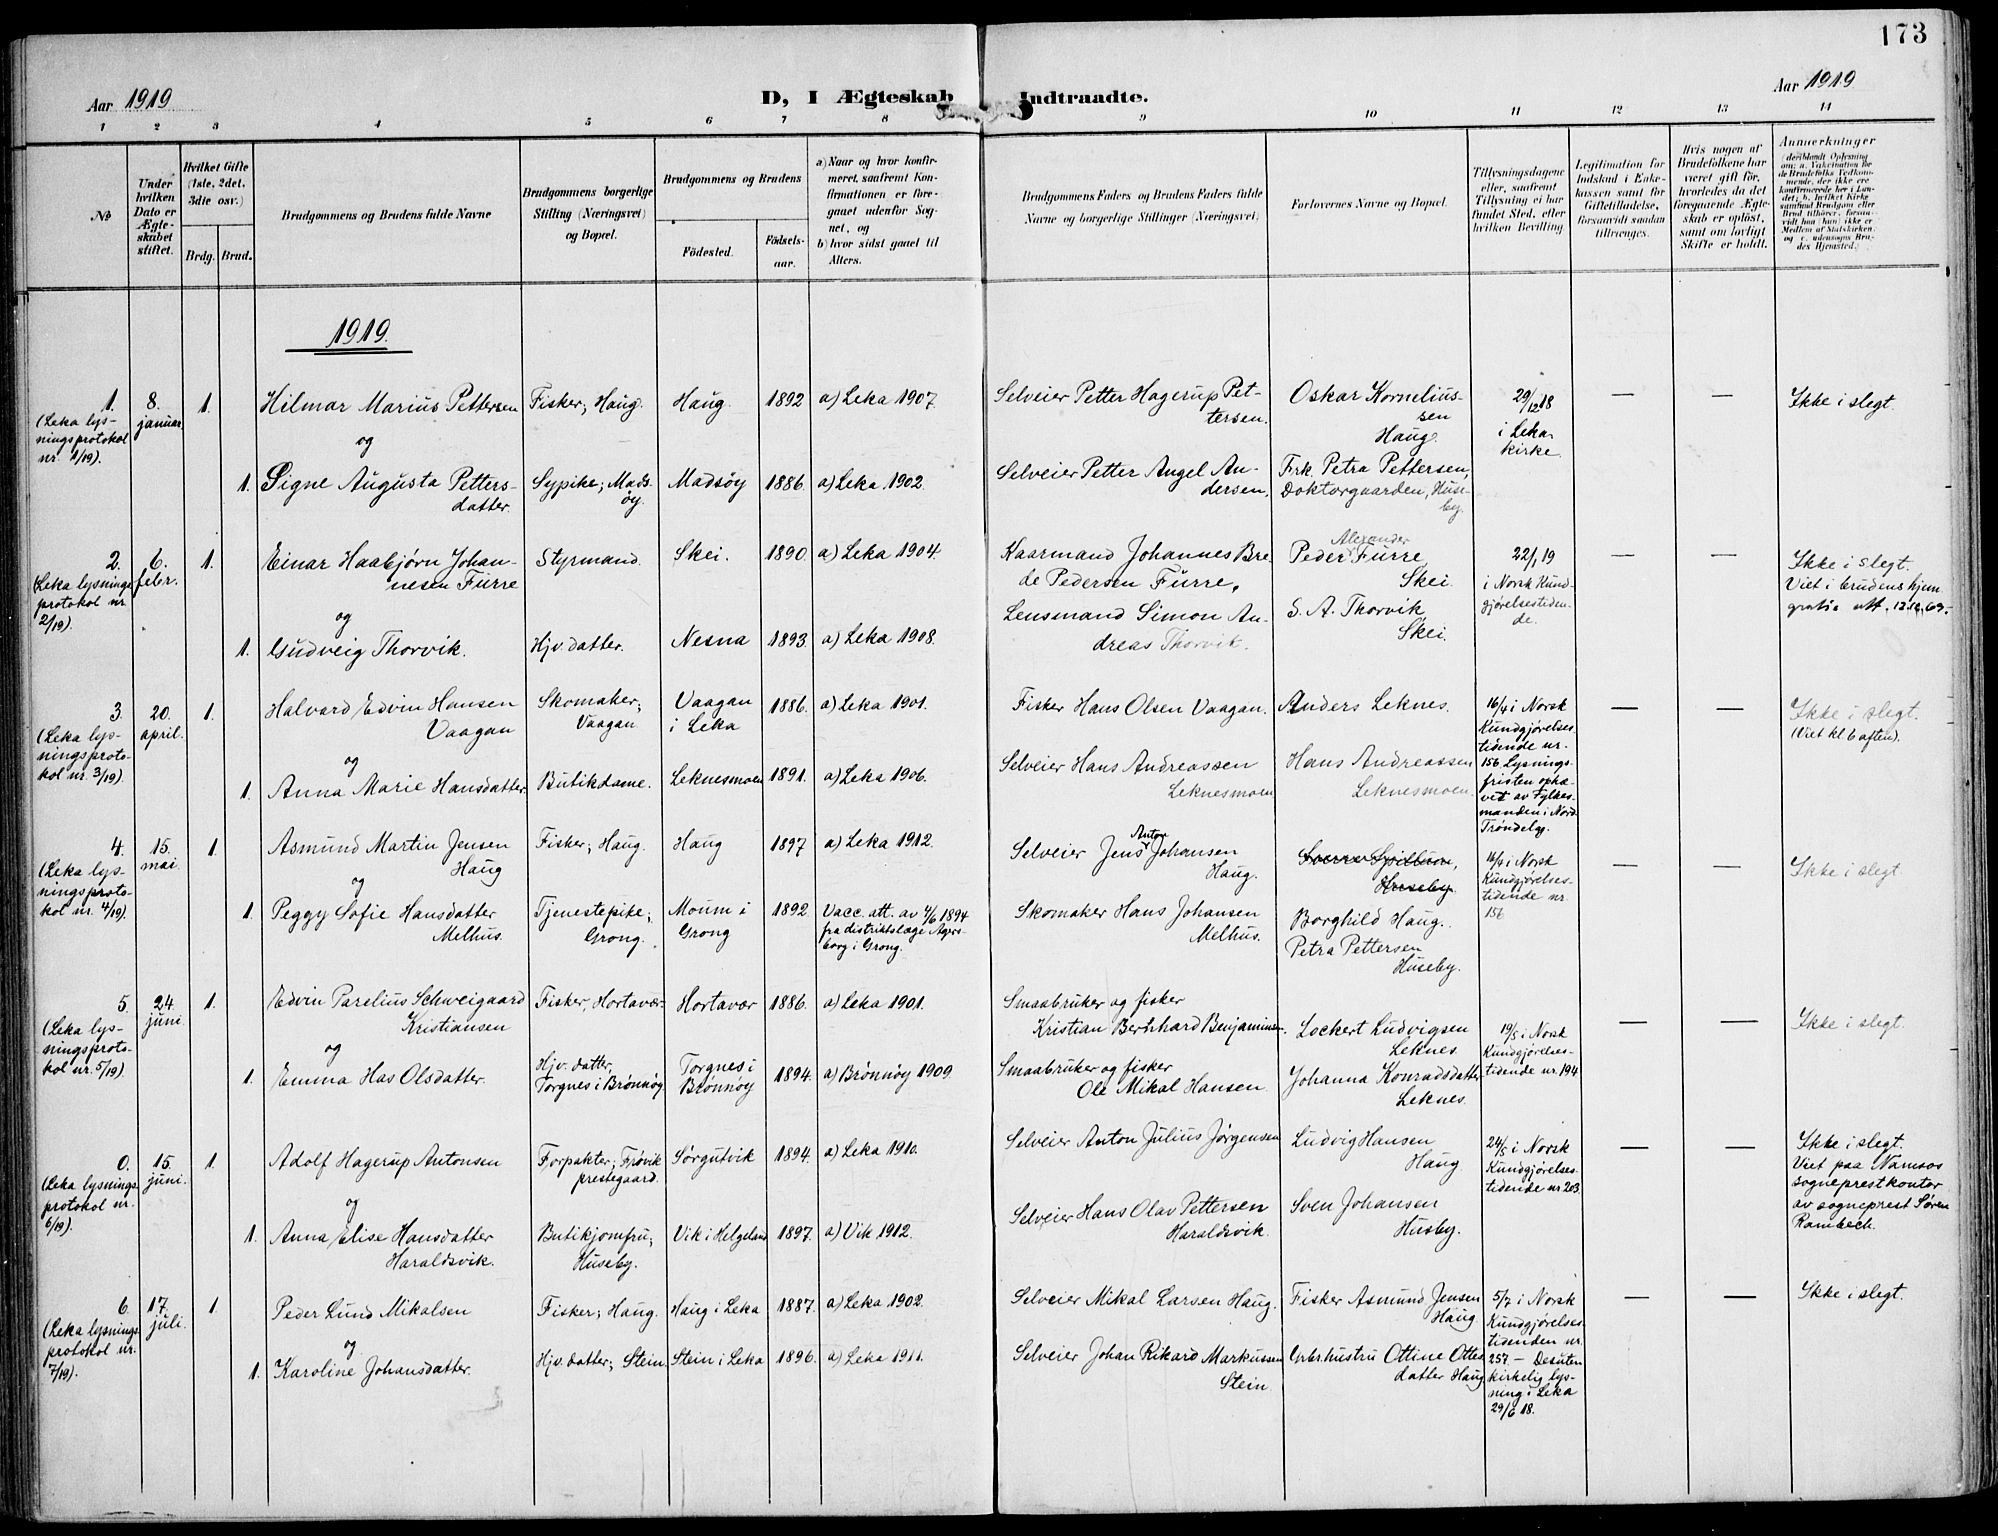 173
Aar 1919
D, I Ægteskab Indtraadte.
Aar 1919
1 2 3 4 5 6 7 8 9 10 11 12 13 14
No
Under hvilken Dato er Ægteskabet stiftet.
Hvilket Gifte (1ste, 2det, 3die osv.)
Brdg. Brud.
Brudgommens og Brudens fulde Navne
Brudgommens borgerlige Stilling (Næringsvei) og Bopæl.
Brudgommens og Brudens
Födested.
Födsels-aar.
a) Naar og hvor konfir-meret, saafremt Kon-firmationen er fore-gaaet udenfor Sog-net, og
b) hvor sidst gaaet til Alters.
Brudgommens Faders og Brudens Faders fulde Navne og borgerlige Stillinger (Næringsvei)
Forlovernes Navne og Bopæl.
Tillysningsdagene eller, saafremt Tillysning ei har fundet Sted, efter hvilken Bevilling.
Legitimation for Indskud i Enke-kassen samt for Giftetilladelse, forsaavidt saadan tiltrænges.
Hvis nogen af Brudefolkene har været gift för, hvorledes da det foregaaende Ægte-skab er oplöst, samt om lovligt Skifte er holdt.
Anmærkninger
(deriblandt Oplysning om: a. Vakcination for de Brudefolks Vedkom-mende, der ikke ere konfirmerede her i Lan-det; b. hvilket Kirke-samfund Brudgom eller Brud tilhörer, forsaa-vidt han (hun) ikke er Medlem af Statskirken, og c. udensogns Bru-des Hjemsted.)
1919.
1. 8. januar 1.
(Leka lys-
ningsprotokol
nr. 1/19).
Hilmar Marius Pettersen
Fisker; Haug.
Haug. 1892 a) Leka 1907.
Selveier Petter Hagerup Pet-
tersen.
Oskar Kornelius-
sen
Haug.
29/12 18
i Leka
kirke
— —
Ikke i slegt.
og
1. Signe Augusta Petters-
datter.
Sypike; Mads-
öy.
Madsöy 1886. a) Leka 1902.
Selveier Petter Angel An-
dersen.
Frk. Petra Pettersen,
Doktorgaarden, Huse-
by.
2. 6. febr. 1.
(Leka lysnings
protokol nr.
2/19).
Einar Haabjörn Johan-
nesen Fürre
Styrmand.
Skei. 1890 a) Leka 1904.
Kaarmand Johannes Bre-
de Pedersen Fürre.
Alexander
Peder Fürre
Skei.
22/1 19
i Norsk Kund-
gjörelsestiden-
de.
— —
Ikke i slegt.
Viet i brudens hjem
gratis att.
og
1. Gudveig Thorvik.
Hjv. datter.
Nesna 1893 a) Leka 1908.
Lensmand Simon An-
dreas Thorvik.
S. A. Thorvik
Skei.
3. 20. april. 1.
(Leka lys-
ningsproto-
kol nr. 3/19).
Halvard Edvin Hansen
Vaagan
Skomaker;
Vaagan
Vaagan
i Leka
1886. a) Leka 1901.
Fisker Hans Olsen Vaagan.
Anders Leknes.
16/4 i Norsk
Kundgjörelses
tidende nr.
156. Lysnings-
fristen ophæ-
vet av Fylkes-
manden i Nord
Tröndelag.
— —
Ikke i slegt.
(Viet kl. 6 aften).
og
1. Anna Marie Hansdatter.
Butikdame.
Leknesmoen 1891. a) Leka 1906.
Selveier Hans Andreassen
Leknesmoen
Hans Andreassen
Leknesmoen.
4. 15. mai. 1.
(Leka lys-
ningsproto-
kol nr. 4/19).
Asmund Martin Jensen
Haug
Fisker; Haug.
Haug 1897 a) Leka 1912.
Anton
Selveier Jens Johansen
Haug.
Sverre Spillum,
Huseby.
16/4 i Norsk
Kundgjörelses-
tidende nr.
156
— —
Ikke i slegt.
og
1. Peggy Sofie Hansdatter
Melhus.
Tjenestepike;
Grong.
Moum i
Grong
1892. Vacc. att. av 4/6 1894
fra distriktslæge Agers-
borg i Grong.
Skomaker Hans Johansen
Melhus.
Borghild Haug.
Petra Pettersen
Huseby.
5. 24 juni. 1.
(Leka lys-
ningsproto-
kol nr. 5/19).
Edvin Parelius Schweigaard
Kristiansen
Fisker, Hortavær.
Hortavær 1886. a) Leka 1901.
Smaabruker og fisker
Kristian Bernhard Benjaminsen.
Lockert Ludvigsen
Leknes.
19/5 i Norsk
Kundgjörelses-
tidende nr. 194
— —
Ikke i slegt.
og
1. Emma Has Olsdatter.
Hjv. datter,
Torgnes i Brönnöy.
Torgnes i
Brönnöy
1894. a) Brönnöy 1909.
Smaabruker og fisker
Ole Mikal Hansen.
Johanna Konradsdatter
Leknes.
0. 15. juni. 1.
(Leka lysnings
protokol nr.
6/19).
Adolf Hagerup Antonsen
Forpakter; Frövik
prestegaard.
Sörgutvik 1894. a) Leka 1910.
Selveier Anton Julius Jörgensen
Ludvig Hansen
Haug
24/5 i Norsk
Kundgjörelses-
tidende nr. 203.
— —
Ikke i slegt.
Viet paa Namsos
sogneprestkontor
av sogneprest Sören
Rambech.
og
1. Anna Elise Hansdatter
Haraldsvik.
Butikjomfru;
Huseby.
Vik i Helgeland 1897. a) Vik 1912.
Selveier Hans Olav Pettersen
Haraldsvik.
Sven Johansen
Husby.
6. 17. juli. 1.
(Leka lysnings
protokol nr.
7/19).
Peder Lund Mikalsen
Fisker; Haug.
Haug i Leka 1887. a) Leka 1902.
Selveier Mikal Larsen Haug.
Fisker Asmund Jensen
Haug
5/7 i Norsk
Kundgjörelses-
tidenden nr.
257. — Desuten
kirkelig lys-
ning i Leka
29/6 18.
— —
Ikke i slegt.
og
1. Karoline Johansdatter.
Hjv. datter; Stein.
Stein i Leka 1896. a) Leka 1911.
Selveier Johan Rikard Markussen
Stein
hustru Ottine Ottes
datter Haug